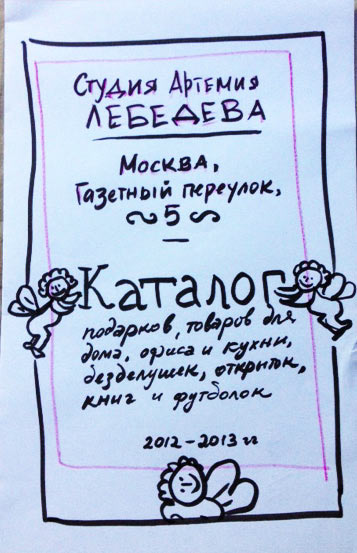 Студия Артемия
ЛЕБЕДЕВА
Москва,
Газетный переулок,
5
Каталог
подарков, товаров для
дома, офиса и кухни,
безделушек, открыток,
книг и футболок
2012-2013 гг